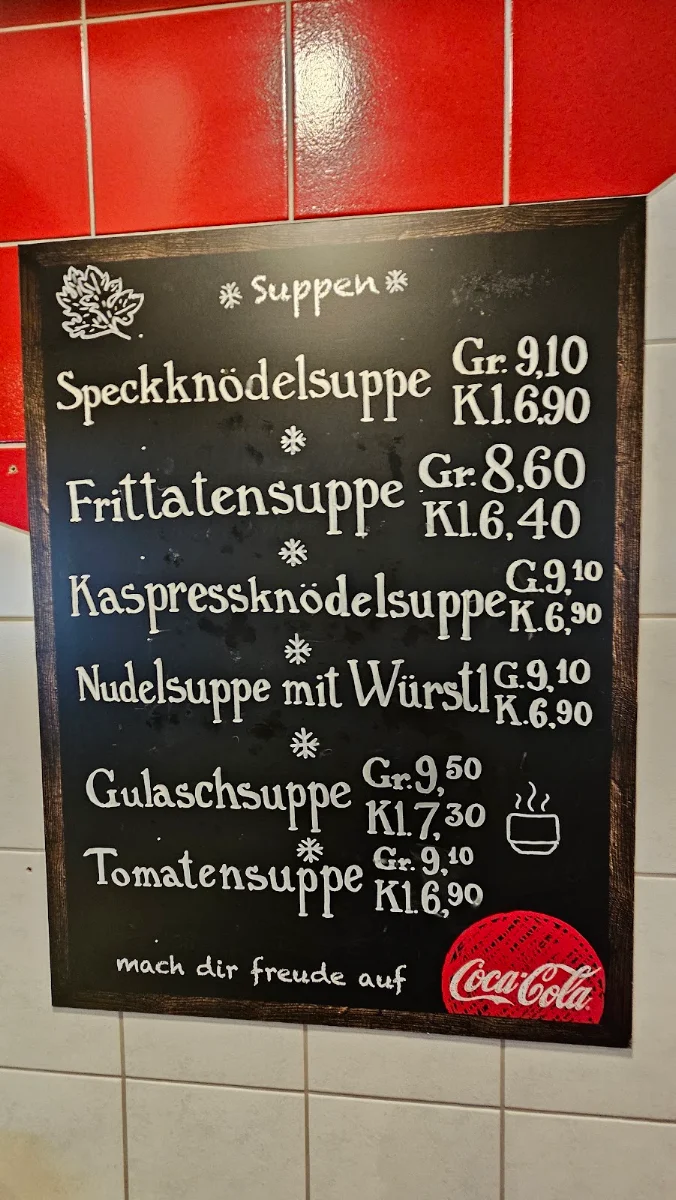 Suppen
Speckknödelsuppe Gr. 9,10
Kl. 6,90
Frittatensuppe Gr. 8,60
Kl. 6,40
Kaspressknödelsuppe G. 9,10
K. 6,90
Nudelsuppe mit Würstl G. 9,10
K. 6,90
Gulaschsuppe Gr. 9,50
Kl. 7,30
Tomatensuppe Gr. 9,10
Kl. 6,90
mach dir freude auf
Coca-Cola